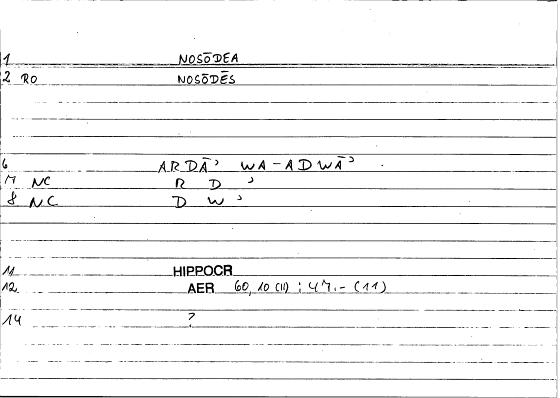 1 NOSŌDEA
2 RO NOSŌDĒS
6 ARDĀʾ WA-ADWĀʾ
7 NC R D ʾ
8 NC D W ʾ
11 HIPPOCR
12 AER 60,10 (11) : 47.- (11)
14 ?